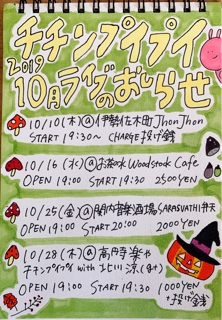 チチンプイプイ
2019
10月ライブのおしらせ
10/10(木)@伊勢佐木町JhonJhon
START 19:30〜 CHARGE投げ銭
10/16(水)@お茶の水Woodstock Cafe
OPEN 19:00 START 19:30 2500YEN
10/25(金)@関内音楽酒場SARASVATI弁天
OPEN 19:00 START 20:00 2000YEN
10/28(木)@高円寺楽や
チチンプイプイwith北川涼
OPEN 19:00 START 19:30 1000YEN
+投げ銭